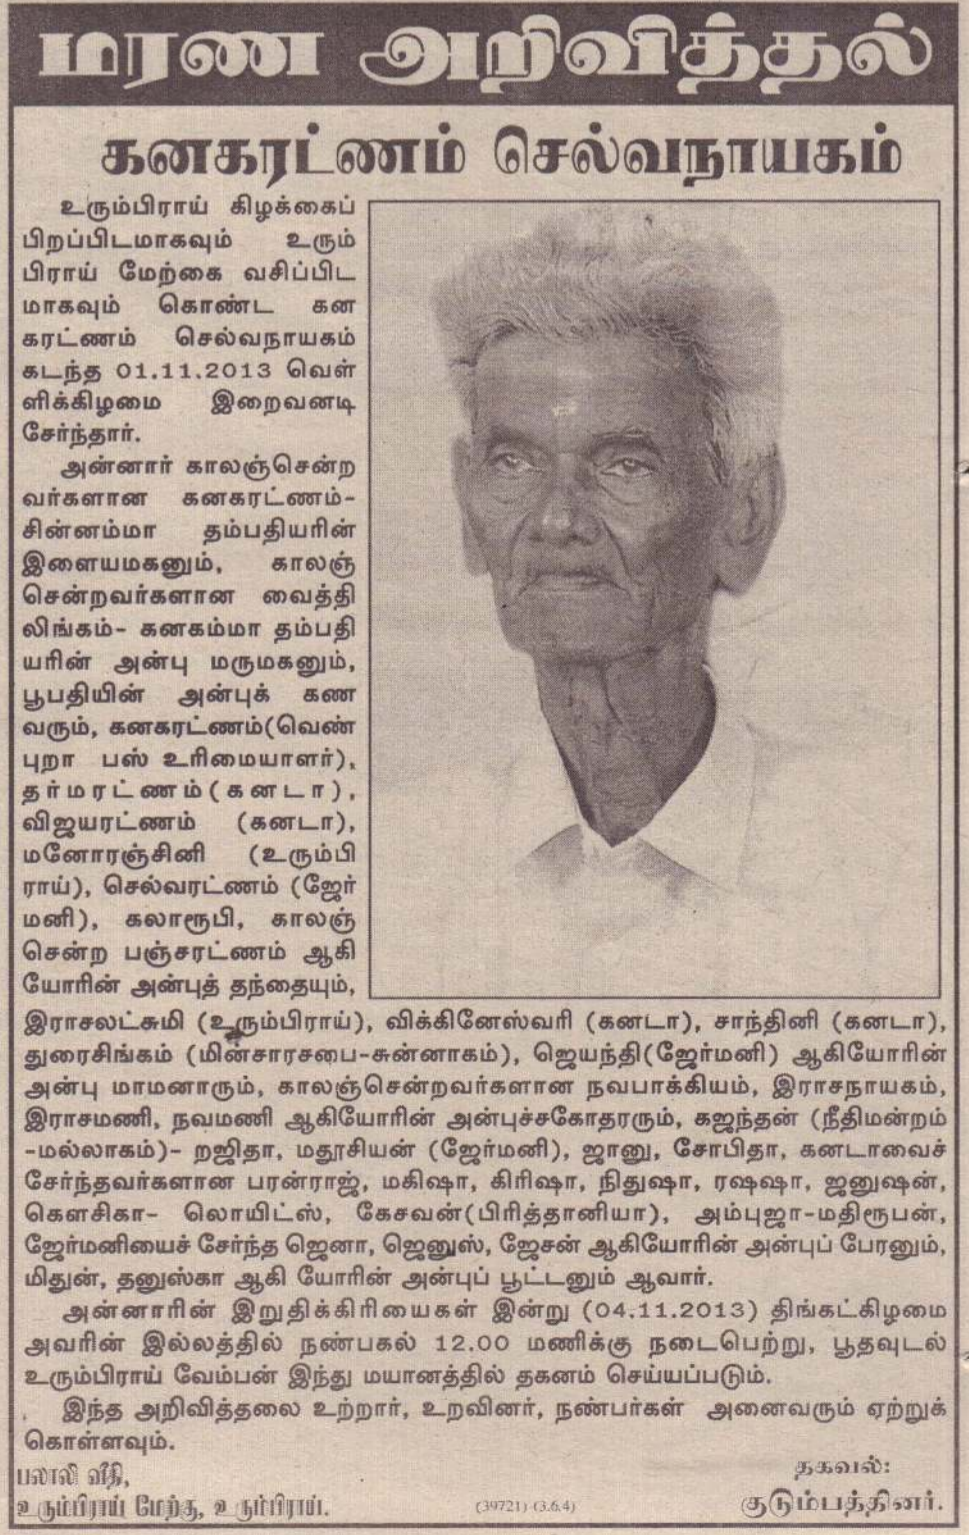 மரண அறிவித்தல்
கனகரட்ணம் செல்வநாயகம்
உரும்பிராய் கிழக்கைப்
பிறப்பிடமாகவும் உரும்
பிராய் மேற்கை வசிப்பிட
மாகவும் கொண்ட கன
கரட்ணம் செல்வநாயகம்
கடந்த 01.11.2013 வெள்
ளிக்கிழமை இறைவனடி
சேர்ந்தார்.
அன்னார் காலஞ்சென்ற
வர்களான கனகரட்ணம்-
சின்னம்மா தம்பதியரின்
இளையமகனும், காலஞ்
சென்றவர்களான வைத்தி
லிங்கம்- கனகம்மா தம்பதி
யரின் அன்பு மருமகனும்,
பூபதியின் அன்புக் கண
வரும், கனகரட்ணம்(வெண்
புறா பஸ் உரிமையாளர்),
தர்மரட்ணம்(கனடா),
விஜயரட்ணம் (கனடா),
மனோரஞ்சினி (உரும்பி
ராய்), செல்வரட்ணம் (ஜேர்
மனி), கலாரூபி, காலஞ்
சென்ற பஞ்சரட்ணம் ஆகி
யோரின் அன்புத் தந்தையும்,
இராசலட்சுமி (உரும்பிராய்), விக்கினேஸ்வரி (கனடா), சாந்தினி (கனடா),
துரைசிங்கம் (மின்சாரசபை-சுன்னாகம்), ஜெயந்தி(ஜேர்மனி) ஆகியோரின்
அன்பு மாமனாரும், காலஞ்சென்றவர்களான நவபாக்கியம், இராசநாயகம்,
இராசமணி, நவமணி ஆகியோரின் அன்புச்சகோதரரும், கஜந்தன் (நீதிமன்றம்
-மல்லாகம்)- றஜிதா, மதூசியன் (ஜேர்மனி), ஜானு, சோபிதா, கனடாவைச்
சேர்ந்தவர்களான பரன்ராஜ், மகிஷா, கிரிஷா, நிதுஷா, ரஷஷா, ஜனுஷன்,
கௌசிகா- லொயிட்ஸ், கேசவன்(பிரித்தானியா), அம்புஜா-மதிரூபன்,
ஜேர்மனியைச் சேர்ந்த ஜெனா, ஜெனுஸ், ஜேசன் ஆகியோரின் அன்புப் பேரனும்,
மிதுன், தனுஸ்கா ஆகி யோரின் அன்புப் பூட்டனும் ஆவார்.
அன்னாரின் இறுதிக்கிரியைகள் இன்று (04.11.2013) திங்கட்கிழமை
அவரின் இல்லத்தில் நண்பகல் 12.00 மணிக்கு நடைபெற்று, பூதவுடல்
உரும்பிராய் வேம்பன் இந்து மயானத்தில் தகனம் செய்யப்படும்.
இந்த அறிவித்தலை உற்றார், உறவினர், நண்பர்கள் அனைவரும் ஏற்றுக்
கொள்ளவும்.
பலாலி வீதி,
உரும்பிராய் மேற்கு, உரும்பிராய்.
(39721) (3.6.4)
தகவல்:
குடும்பத்தினர்.